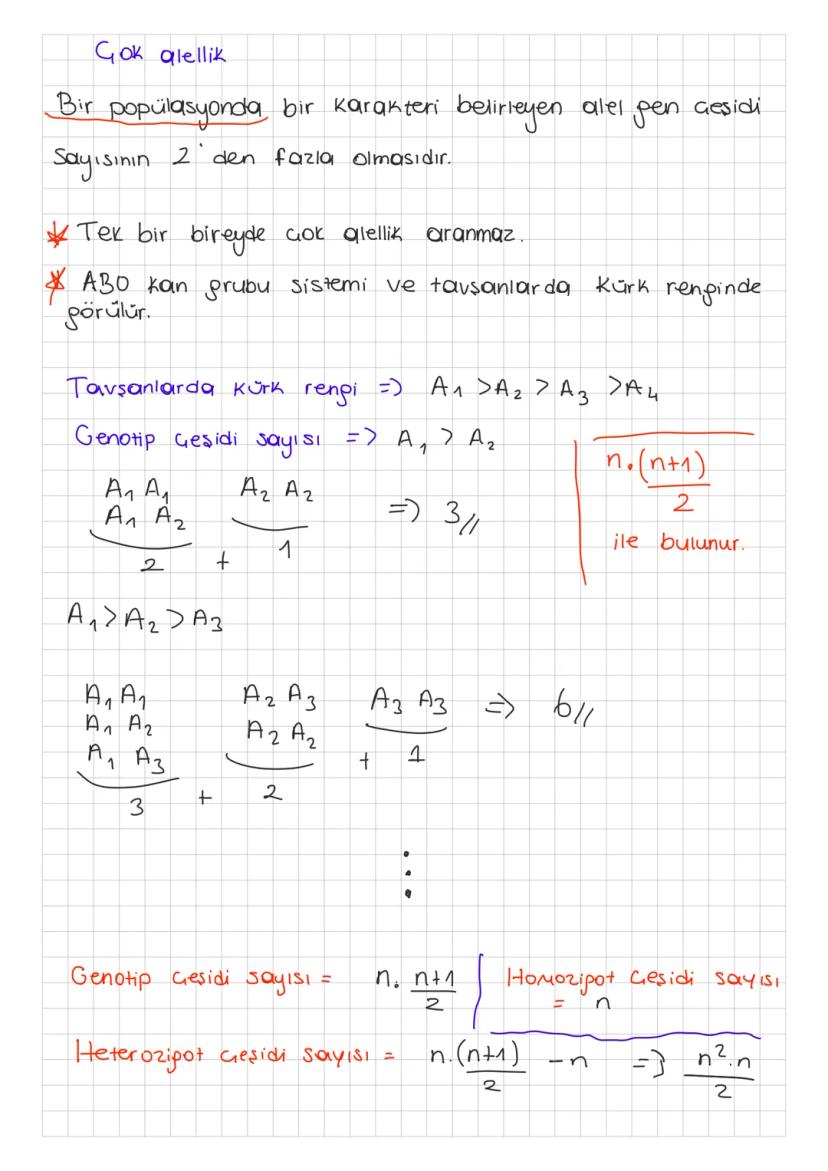 Çok alellik
Bir popülasyonda bir karakteri belirleyen alel gen çeşidi
sayısının 2'den fazla olmasıdır.
* Tek bir bireyde çok alellik aranmaz.
* ABO kan grubu sistemi ve tavşanlarda kürk renginde
görülür.
Tavşanlarda kürk rengi => A₁ > A₂ > A₃ > A₄
Genotip çeşidi sayısı => A₁ > A₂
n.(n+1)/2
ile bulunur.
A₁A₁ A₂A₂
A₁A₂ => 3//
2 + 1
A₁ > A₂ > A₃
A₁A₁ A₂A₃ A₃A₃ => 6//
A₁A₂ A₂A₂
A₁A₃ + 1
3 + 2
Genotip çeşidi sayısı = n. n+1/2
Homozigot çeşidi sayısı
= n
Heterozigot çeşidi sayısı = n.(n+1)/2 - n => n².n/2